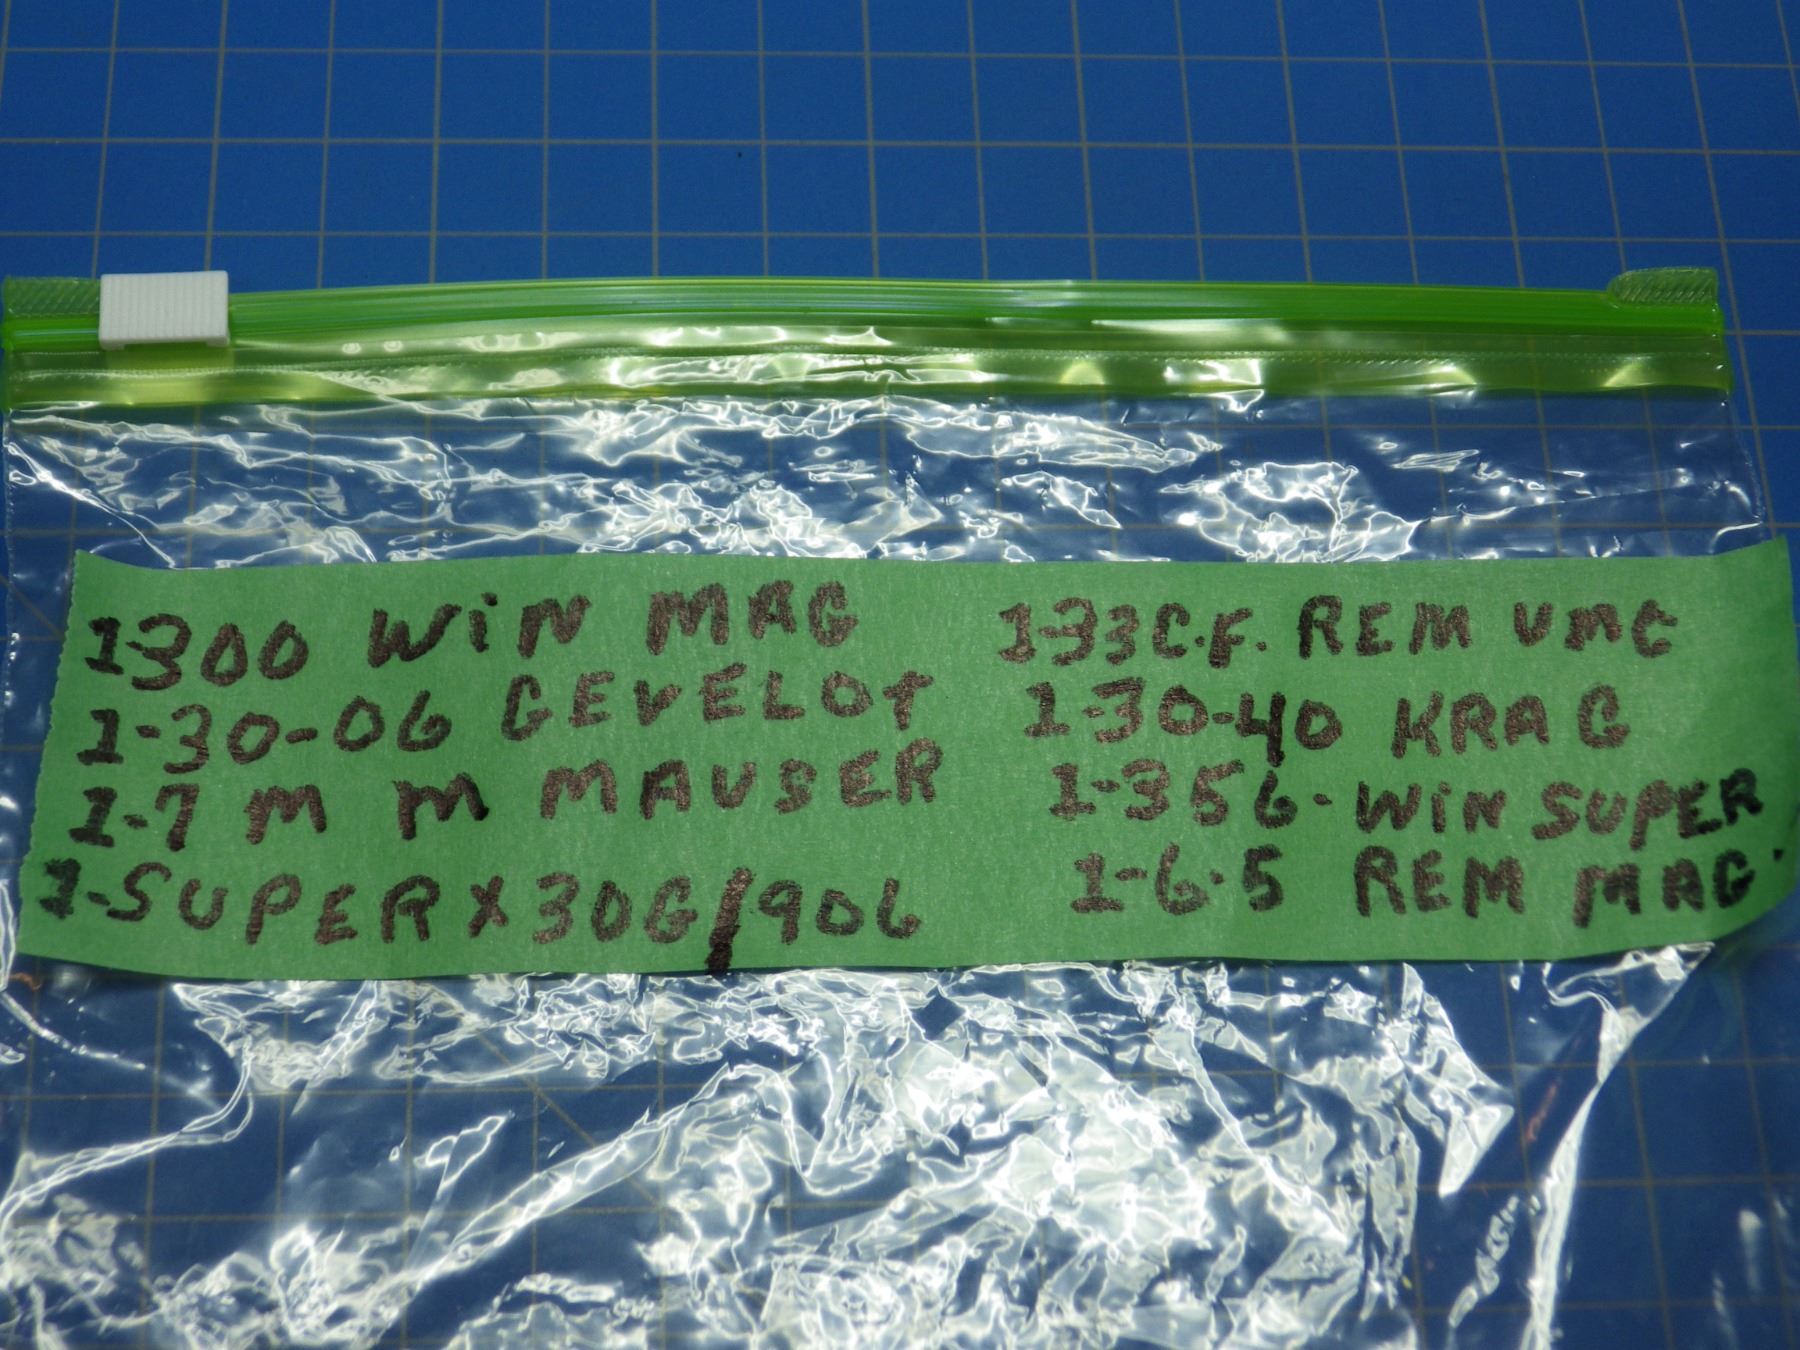 1-300 WiN MAG
1-30-06 GEVELOT
1-7 m m MAUSER
1-SUPER X 30G/906
1-33 C.F. REM UMC
1-30-40 KRAG
1-356-WiN SUPER
1-6.5 REM MAG.